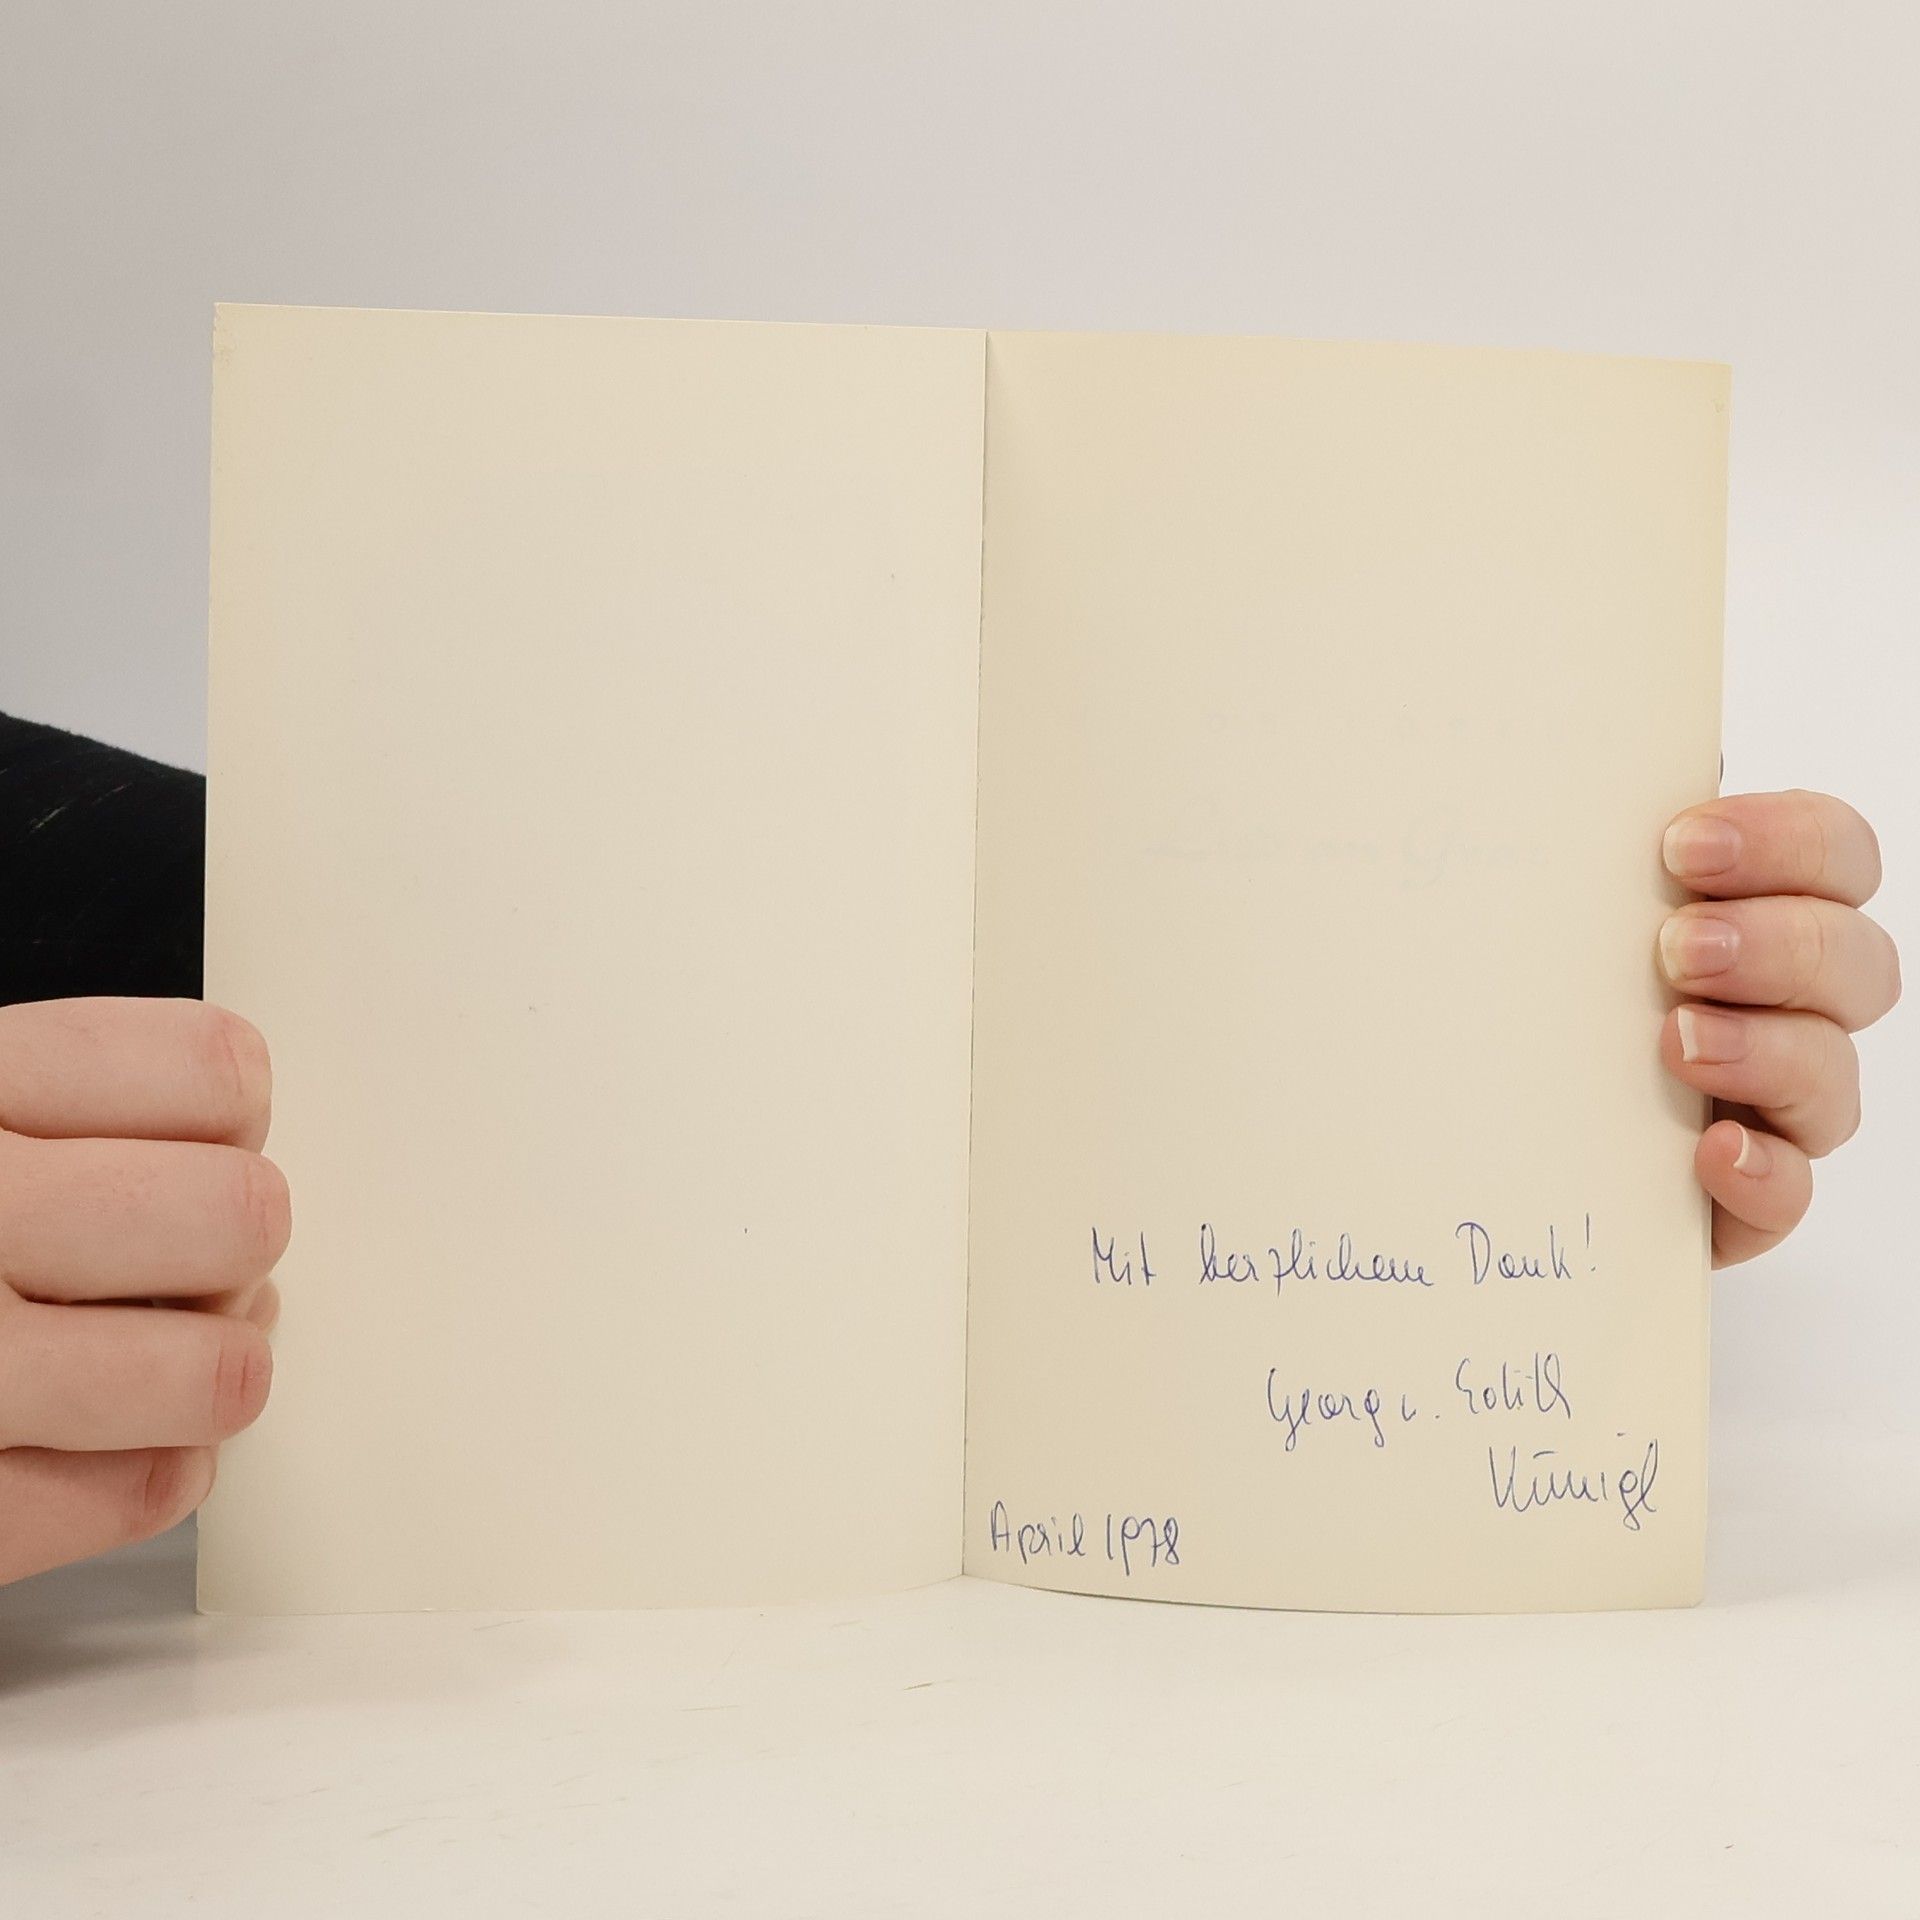 Mit herzlichem Dank!
Georg u. Edith
Künigl
April 1978